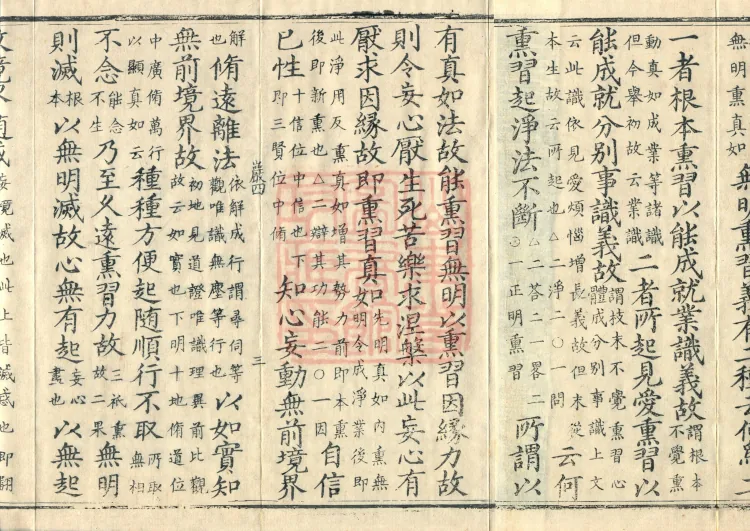 無明熏真如 無明熏習義有二種云何
一者根本熏習以能成就業識義故 謂根本 不覺熏
動真如成業等諸識 但今舉初故云業識 二者所起見愛熏習以
能成就分別事識義故 謂枝末不覺熏習心 體成分別事識上文
云此識依見愛煩惱增長義故但末從 本生故云所起也△二淨二○一問 云何
熏習起淨法不斷 △二荅二一畧二 ○一正明熏習 所謂以
有真如法故能熏習無明以熏習因緣力故
則令妄心厭生死苦樂求涅槃以此妄心有
厭求因緣故即熏習真如 先明真如內熏無 明令成淨業後即
此淨用反熏真如增其勢力前即本熏 後即新熏也△二辯其功能二○一因 自信
已性 十信位中信也下 即三賢位中脩 知心妄動無前境界
四 三
解也 脩遠離法 依解成行謂尋伺等 觀唯識無塵等行也 以如實知
無前境界故 初地見道證唯識理異前比觀 故云如實也下明十地脩道位
中廣脩萬行 以顯真如云 種種方便起隨順行不取 所取 無相
不念 能念 不生 乃至久遠熏習力故 三祇熏 故二果 無明
則滅 根 本 以無明滅故心無有起 妄心 盡也 以無起
故境界隨滅 妄境滅也此上皆滅惑也即翻